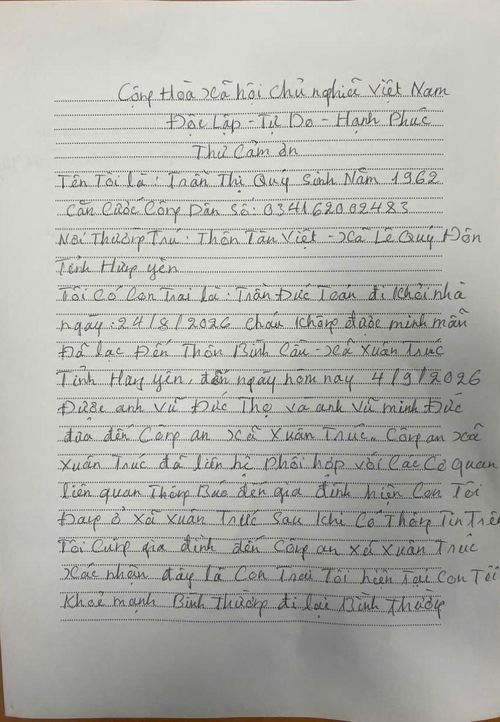 Cộng Hòa Xã hội Chủ nghĩa Việt Nam
Độc Lập - Tự Do - Hạnh Phúc
Thư Cảm ơn
Tên Tôi là : Trần Thị Quý Sinh Năm 1962
Căn Cước Công Dân Số : 034162002483
Nơi Thường Trú : Thôn Tân Việt - Xã Lê Quý Đôn
Tỉnh Hưng yên
Tôi Có Con Trai là : Trần Đức Toán đi khỏi nhà
ngày : 24/8/2026 cháu không được minh mẫn
Đã lạc Đến Thôn Bình Cầu - Xã Xuân Trúc
Tỉnh Hưng yên, đến ngày hôm nay 4/9/2026
Được anh Vũ Đức Thọ và anh Vũ minh Đức
đưa đến Công an Xã Xuân Trúc. Công an Xã
Xuân Trúc đã liên hệ phối hợp với Các Cơ quan
liên quan Thông Báo đến gia đình hiện Con Tôi
Đang ở Xã Xuân Trúc Sau khi Có Thông Tin Trên
Tôi Cùng gia đình đến Công an Xã Xuân Trúc
Xác nhận đây là Con Trai Tôi hiện Tại Con Tôi
Khoẻ mạnh Bình Thường đi lại Bình Thường